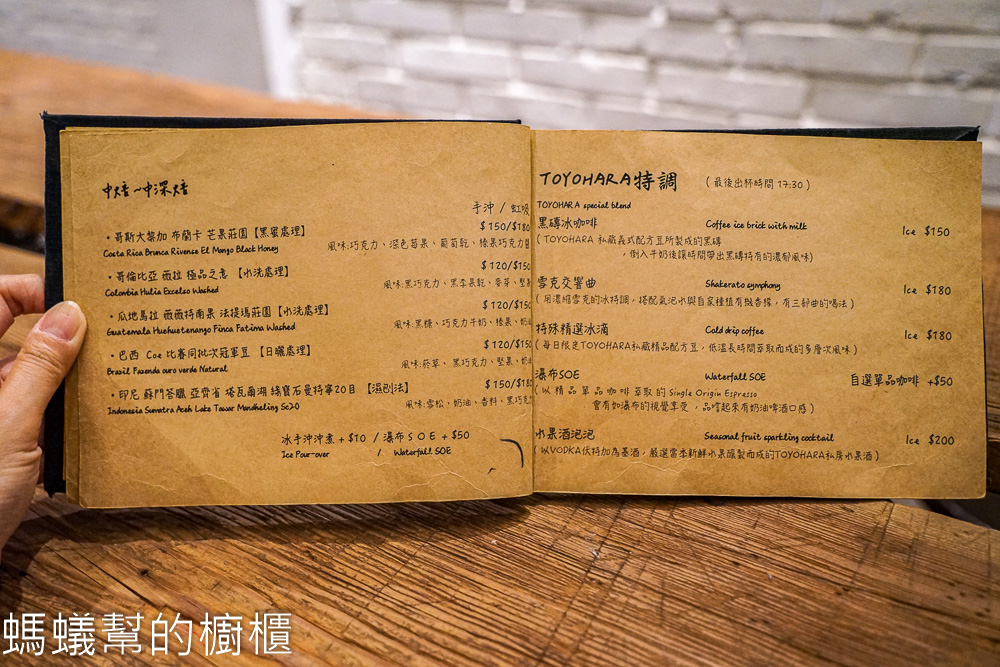 中焙~中深焙
手沖 / 虹吸
・哥斯大黎加 布蘭卡 芒果莊園【黑蜜處理】 $150/$180
Costa Rica Brunca Rivense El Mango Black Honey
風味:巧克力、深色莓果、葡萄乾、榛果巧克力醬
・哥倫比亞 薇拉 極品之意【水洗處理】 $120/$150
Colombia Hulia Excelso Washed
風味:黑巧克力、黑李果乾、麥芽、堅果
・瓜地馬拉 薇薇特南果 法提瑪莊園【水洗處理】 $120/$150
Guatemala Huehuetenango Finca Fatima Washed
風味:黑糖、巧克力牛奶、榛果、奶油
・巴西 Coe 比賽同批次冠軍豆【日曬處理】 $120/$150
Brazil Fazenda ouro verde Natural
風味:菸草、黑巧克力、堅果、奶油
・印尼 蘇門答臘 亞齊省 塔瓦爾湖 綠寶石曼特寧20目【濕刨法】 $150/$180
Indonesia Sumatra Aceh Lake Tawar Mandheling Sc20
風味:雪松、奶油、香料、黑巧克
冰手沖沖煮 + $10 / 瀑布SOE + $50
Ice Pour-over / Waterfall SOE
TOYOHARA特調 (最後出杯時間 17:30)
TOYOHARA special blend
黑磚冰咖啡 Coffee ice brick with milk Ice $150
(TOYOHARA 私藏義式配方豆所製成的黑磚
，倒入牛奶後讓時間帶出黑磚特有的濃郁風味)
雪克交響曲 Shakerato symphony Ice $180
(用濃縮雪克的冰特調，搭配氣泡水與自家種植有機香檬，有三部曲的喝法)
特殊精選冰滴 Cold drip coffee Ice $180
(每日限定TOYOHARA私藏精品配方豆，低溫長時間萃取而成的多層次風味)
瀑布SOE Waterfall SOE 自選單品咖啡 +$50
(以精品單品咖啡萃取的Single Origin Espresso
會有如瀑布的視覺享受，品嚐起來有奶油啤酒口感)
水果酒泡泡 Seasonal fruit sparkling cocktail Ice $200
(以VODKA伏特加為基酒，嚴選當季新鮮水果釀製而成的TOYOHARA私房水果酒)
螞蟻幫的櫥櫃